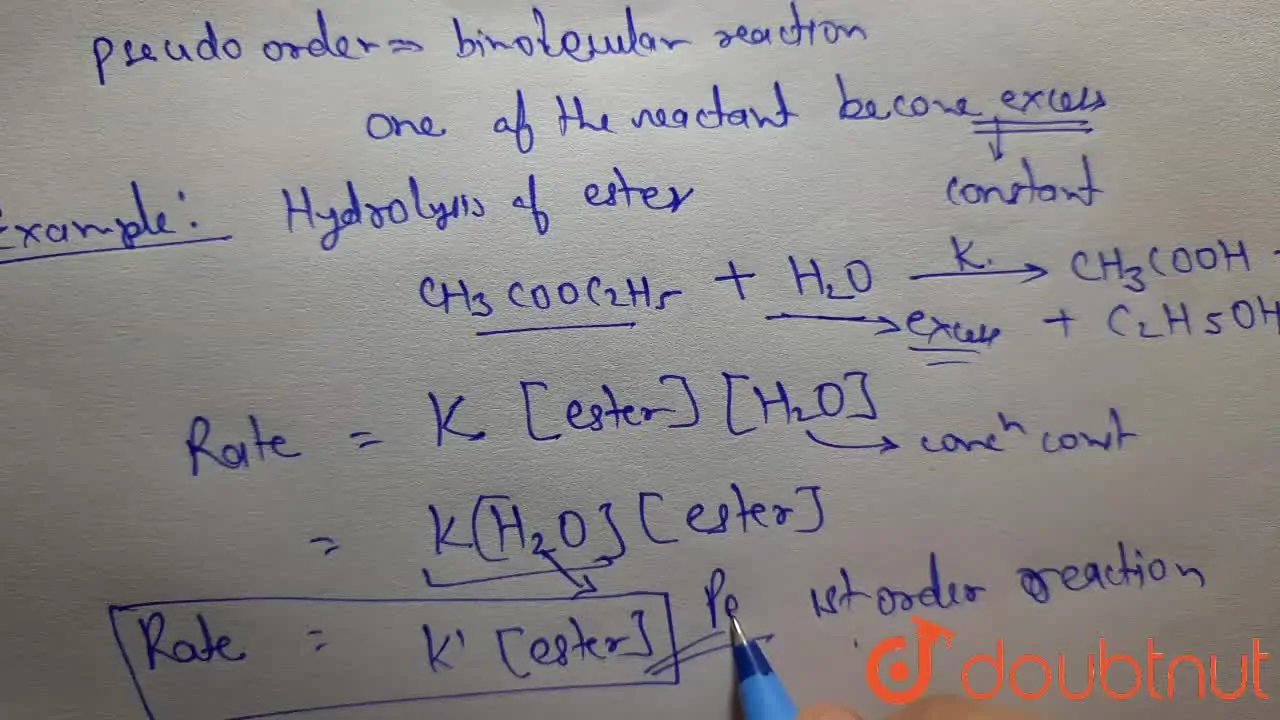 pseudo order ⇒ bimolecular reaction
one of the reactant become excess
constant
Example: Hydrolysis of ester
CH3COOC2H5 + H2O K. → CH3COOH
→ excess + C2H5OH
Rate = K [ester] [H2O]
→ concn const
= K[H2O] [ester]
Rate = K' [ester]
Ps 1st order reaction
doubtnut